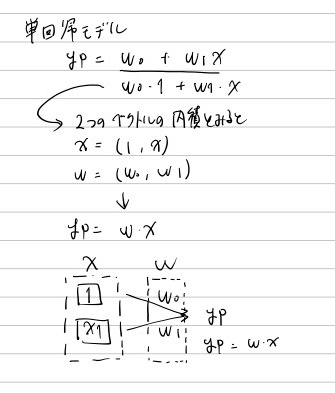 単回帰モデル
yp = w₀ + w₁x
w₀・1 + w₁・x
2つのベクトルの内積とみると
x = (1, x)
w = (w₀, w₁)
↓
yp = w・x
x w
1 w₀
x1 w₁
yp
yp = w・x